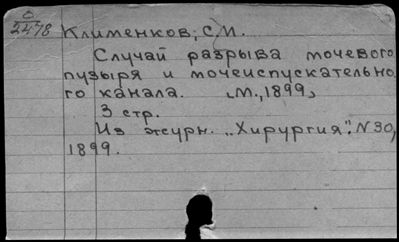 О
2478
Клименков, С.И.
Случай разрыва мочевого
пузыря и мочеиспускательно
го канала. [М., 1899]
3 стр.
Из журн. „Хирургия". N 30,
1899.